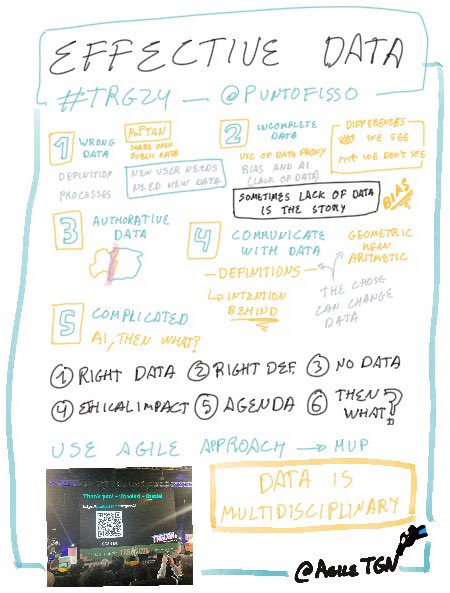 EFFECTIVE DATA
#TRG24 — @PUNTOFISSO
1 WRONG DATA
MAPTAN
SHARE OPEN
PUBLIC DATA
DEFINITION
PROCESSES
NEW USER NEEDS
NEED NEW DATA
2 INCOMPLETE
DATA
USE OF DATA PROXY
BIAS AND AI
(LACK OF DATA)
DIFFERENCES
WE SEE
WE DON'T SEE
SOMETIMES LACK OF DATA
IS THE STORY
BIAS
3 AUTHORATIVE
DATA
4 COMMUNICATE
WITH DATA
— DEFINITIONS
↳ INTENTION
BEHIND
GEOMETRIC
MEAN
ARITMETIC
THE CHOSE
CAN CHANGE
DATA
5 COMPLICATED
AI, THEN WHAT?
① RIGHT DATA ② RIGHT DEF. ③ NO DATA
④ ETHICAL IMPACT ⑤ AGENDA ⑥ THEN
WHAT?
USE AGILE APPROACH → MVP
DATA IS
MULTIDISCIPLINARY
@AGILE TGN